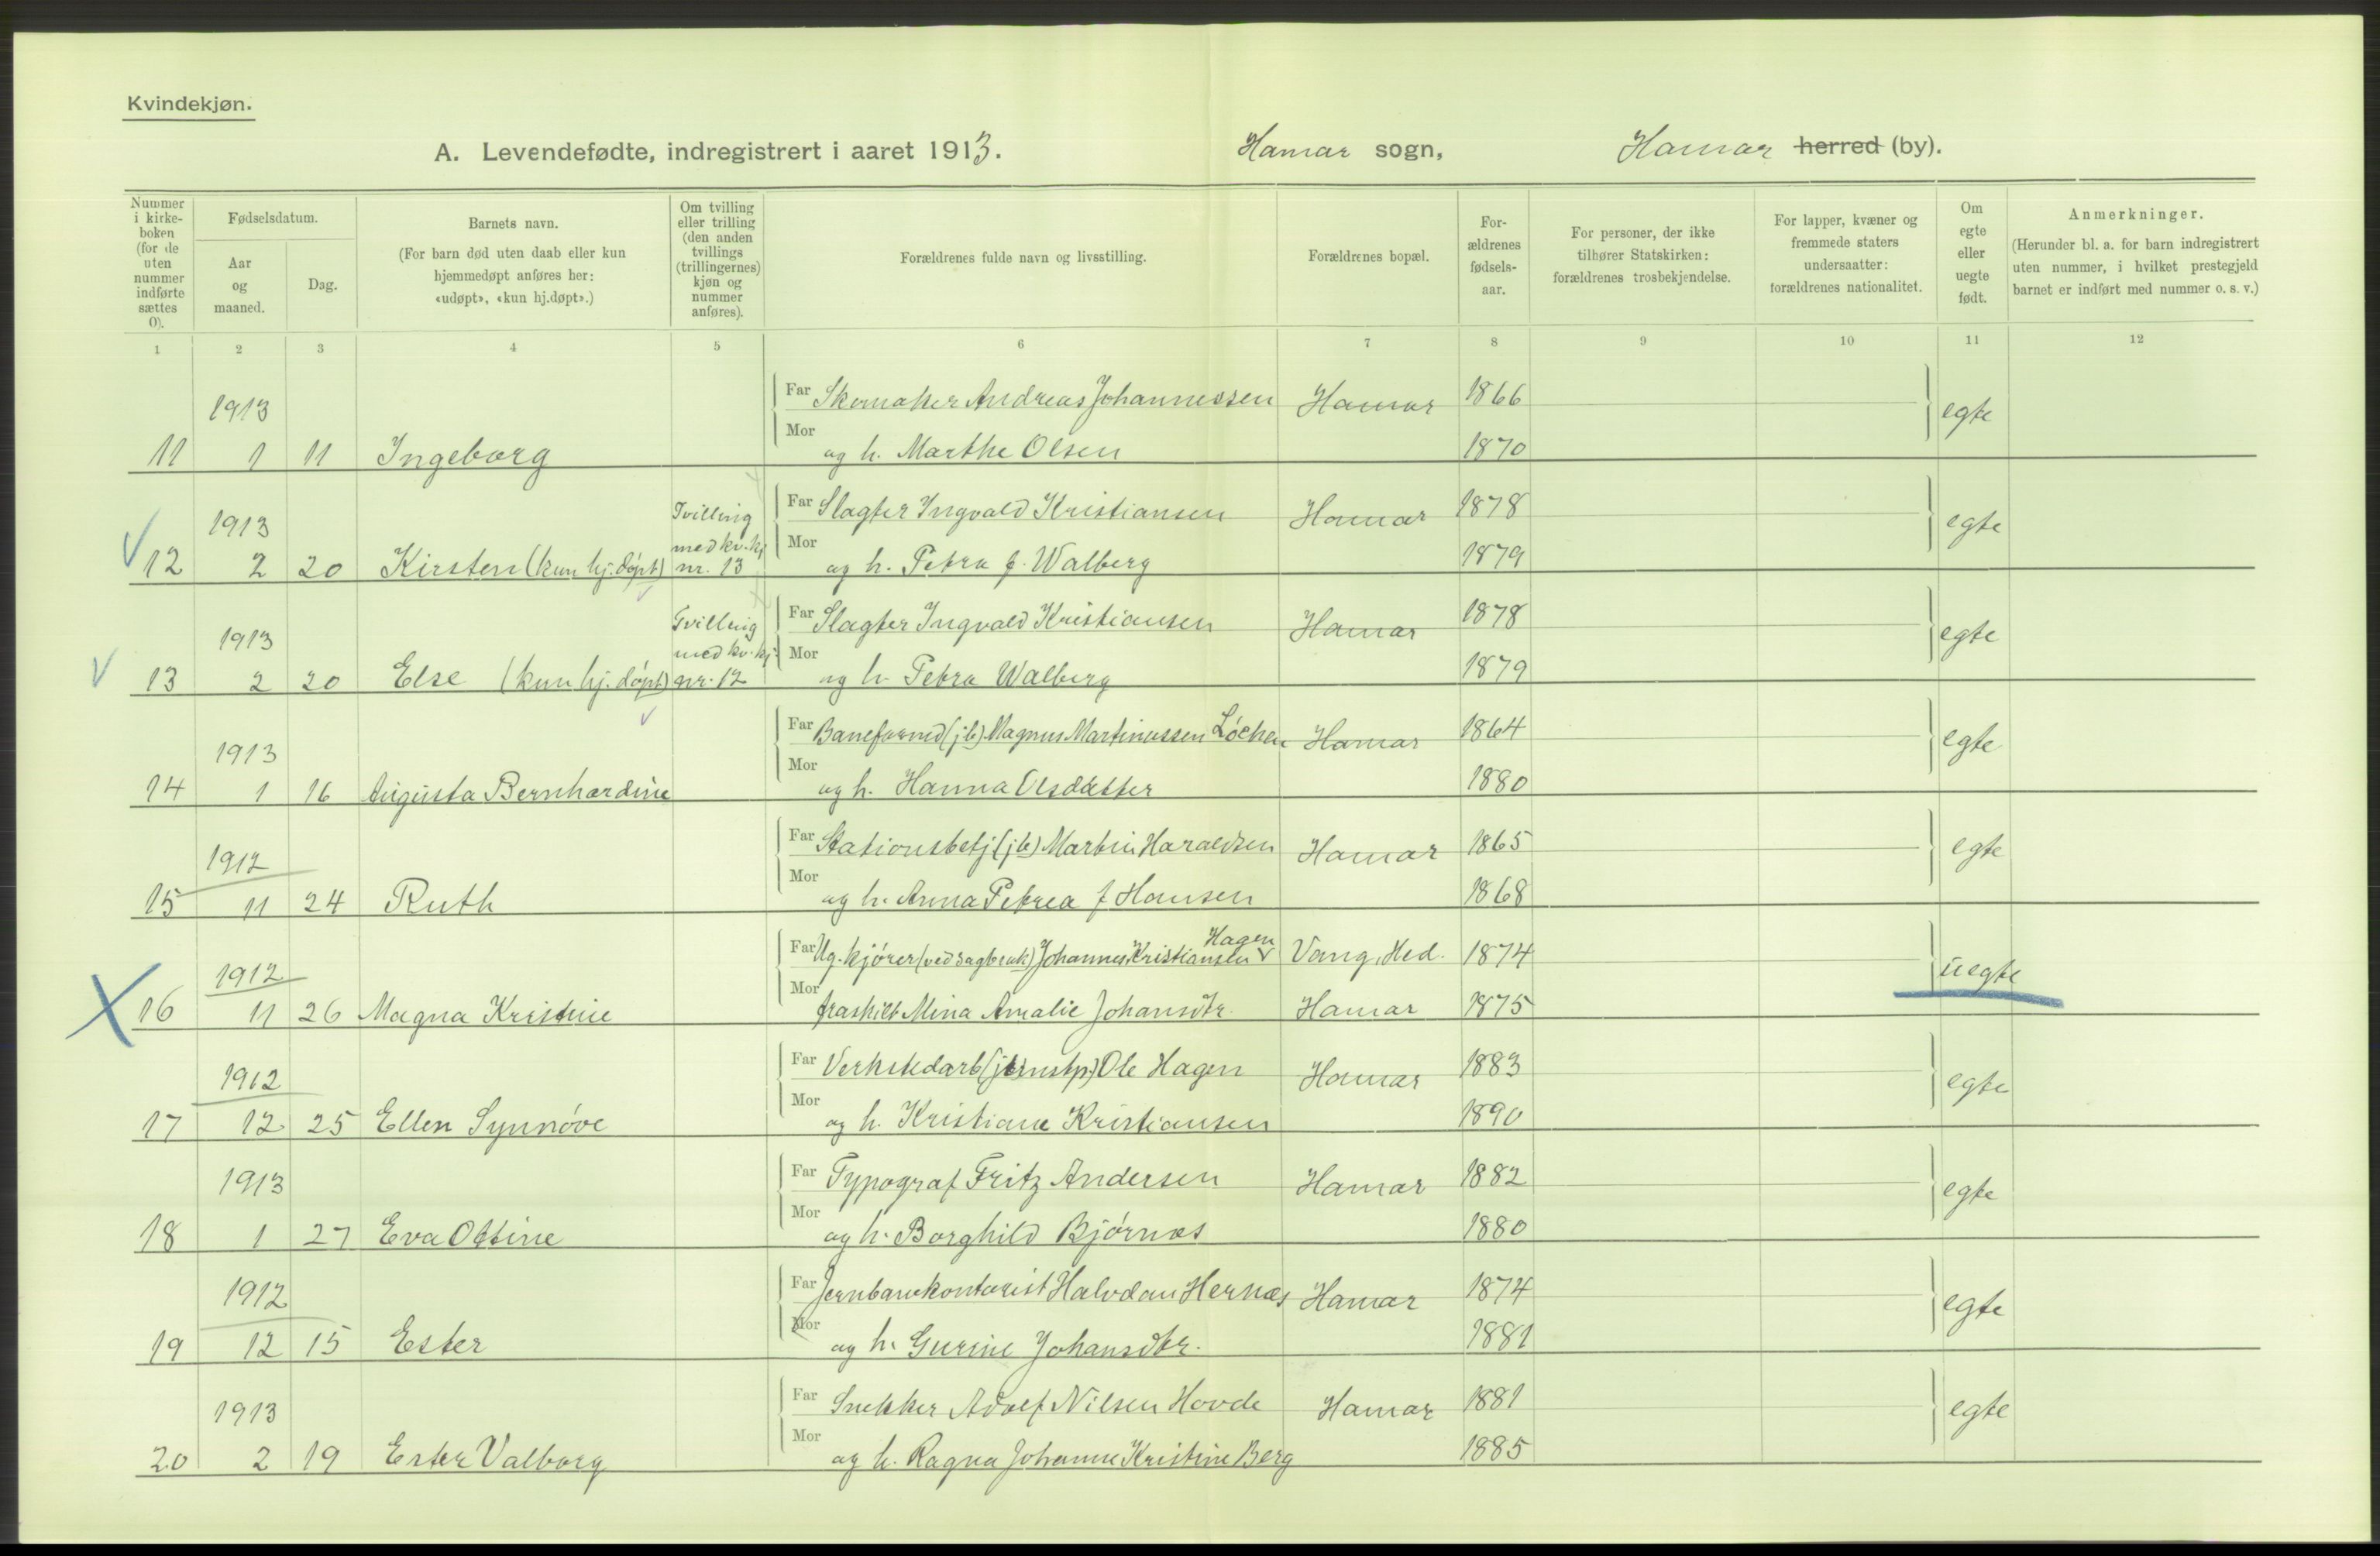 Kvindekjøn.
A. Levendefødte, indregistrert i aaret 1913. Hamar sogn, Hamar herred (by).
Nummer i kirke-boken (for de uten nummer indførte sættes 0).
Fødselsdatum.
Aar og maaned.
Dag.
Barnets navn.
(For barn død uten daab eller kun hjemmedøpt anføres her: «udøpt», «kun hj.døpt».)
Om tvilling eller trilling (den anden tvillings (trillingernes) kjøn og nummer anføres).
Forældrenes fulde navn og livsstilling.
Forældrenes bopæl.
For-ældrenes fødsels-aar.
For personer, der ikke tilhører Statskirken: forældrenes trosbekjendelse.
For lapper, kvæner og fremmede staters undersaatter: forældrenes nationalitet.
Om egte eller uegte født.
Anmerkninger.
(Herunder bl. a. for barn indregistrert uten nummer, i hvilket prestegjeld barnet er indført med nummer o. s. v.)
1 2 3 4 5 6 7 8 9 10 11 12
1913 Far Skomaker Andreas Johannessen Hamar 1866 egte
11 1 11 Ingeborg Mor og h. Marthe Olsen 1870
1913 Tvilling med kv.kj Far Slagter Ingvald Kristiansen Hamar 1878 egte
12 2 20 Kirsten (kun hj.døpt) nr. 13 Mor og h. Petra f. Walberg 1879
1913 Tvilling med kv.kj. Far Slagter Ingvald Kristiansen Hamar 1878 egte
13 2 20 Else (kun hj.døpt) nr. 12 Mor og h. Petra Walberg 1879
1913 Far Baneformd (jb) Magnus Martinussen Løchen Hamar 1864 egte
14 1 16 Augusta Bernhardine Mor og h. Hanna Olsdatter 1880
1912 Far Stationsbetj (jb) Martin Haraldsen Hamar 1865 egte
15 11 24 Ruth Mor og h. Anna Petrea f Hansen 1868
1912 Far Ug. kjører (ved sagbruk) Johannes Kristiansen Hagen Vang, Hed. 1874 uegte
16 11 26 Magna Kristine Mor fraskilt Mina Amalie Johansdtr. Hamar 1875
1912 Far Verkstedarb (jernstp.) Ole Hagen Hamar 1883 egte
17 12 25 Ellen Synnøve Mor og h. Kristiane Kristiansen 1890
1913 Far Typograf Fritz Andersen Hamar 1882 egte
18 1 27 Eva Ottine Mor og h. Borghild Bjørnæs 1880
1912 Far Jernbanekontorist Halvdan Hernæs Hamar 1874 egte
19 12 15 Ester Mor og h. Gurine Johansdtr. 1881
1913 Far Snekker Adolf Nilsen Hovde Hamar 1881 egte
20 2 19 Ester Valborg Mor og h. Ragna Johanne Kristine Berg 1885